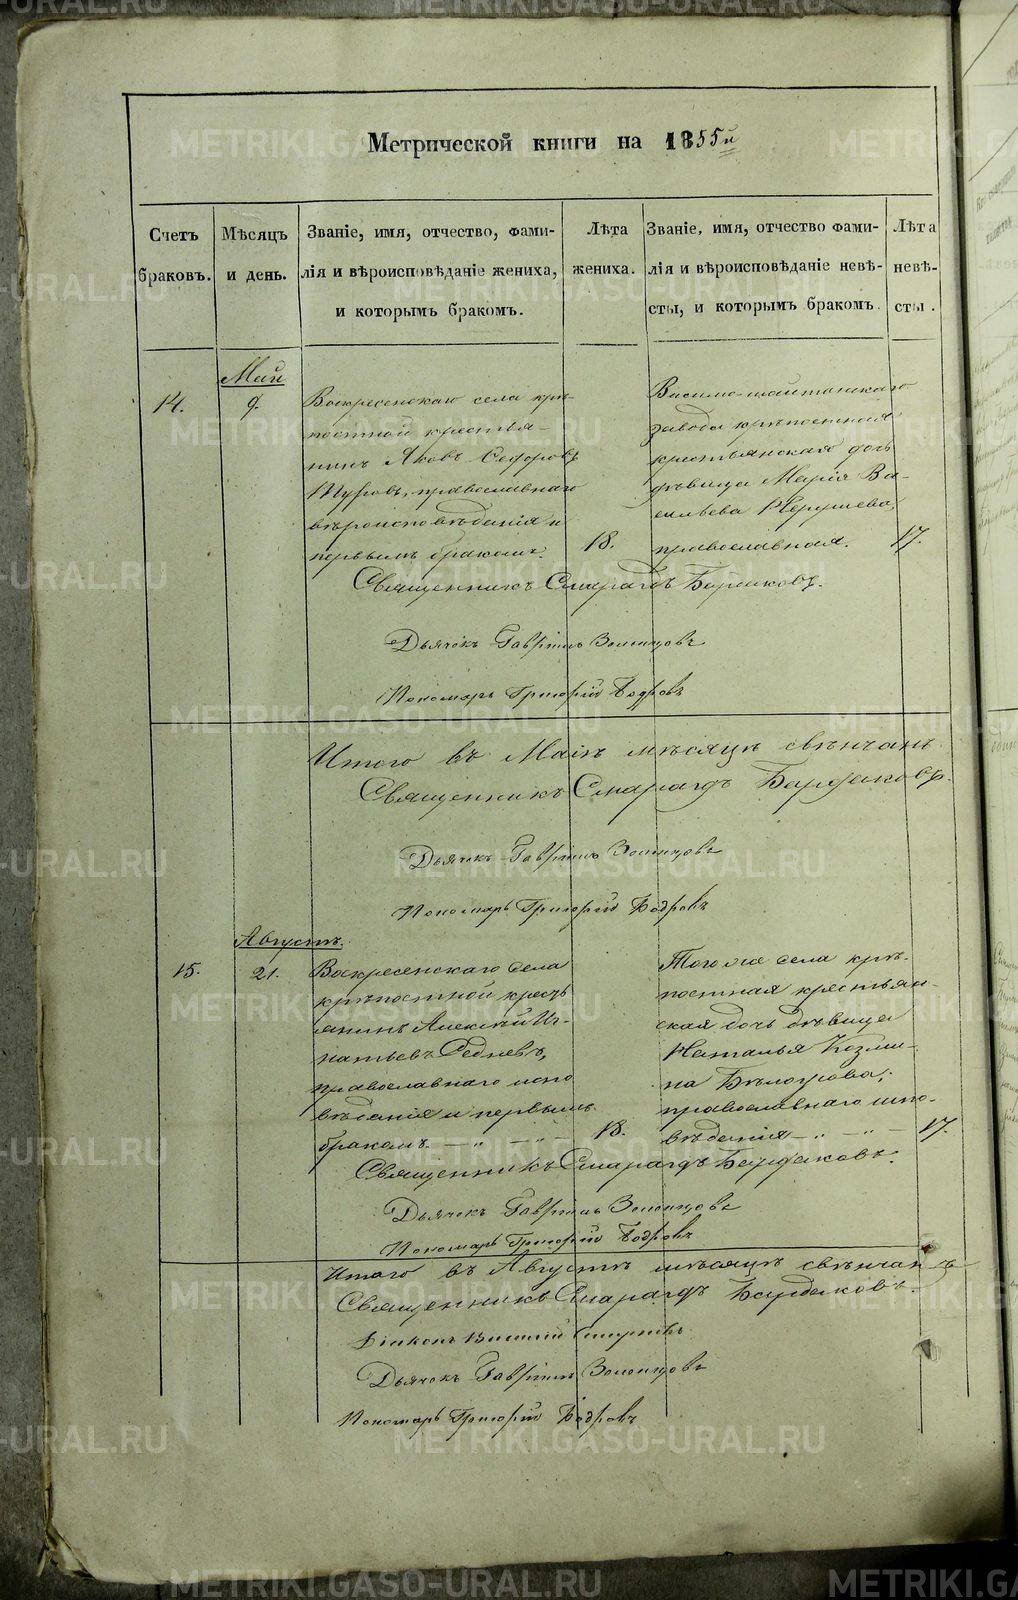 Метрической книги на 1855й
Счетъ браковъ.
Мѣсяцъ и день.
Званіе, имя, отчество, фами-
лія и вѣроисповѣданіе жениха,
и которымъ бракомъ.
Лѣта жениха.
Званіе, имя, отчество фами-
лія и вѣроисповѣданіе невѣ-
сты, и которымъ бракомъ.
Лѣта невѣ-
сты.
Май
14.
9.
Воскресенскаго села крѣ-
постной крестья-
нинъ Яковъ Ѳедоровъ
православнаго
вѣроисповѣданія и
первымъ бракомъ.
18.
Висимо-шайтанскаго
завода крѣпостная
крестьянская дочь
дѣвица Марія Ва-
сильева
православная.
17.
Священникъ Смарагдъ Бардаковъ.
Дьячокъ Гавріилъ
Пономарь Григорій Бодровъ
Итого въ Маiѣ мѣсяцѣ свѣнчанъ
Священникъ Смарагдъ Бардаковъ.
Дьячокъ Гавріилъ
Пономарь Григорій Бодровъ
Августъ.
15.
21.
Воскресенскаго села
крѣпостной кресть
янинъ Алексѣй Иг-
натьевъ
православнаго испо
вѣданія и первымъ
бракомъ. — „ — „ —
18.
Того же села крѣ-
постная крестьян-
ская дочь дѣвица
Наталья Козми-
на Бѣлоусова;
православнаго испо-
вѣданія — „ — „ —
17.
Священникъ Смарагдъ Бардаковъ.
Дьячокъ Гавріилъ
Пономарь Григорій Бодровъ
Итого въ Августѣ мѣсяцѣ свѣнчанъ
Священникъ Смарагдъ Бардаковъ.
Діаконъ Василій
Дьячокъ Гавріилъ
Пономарь Григорій Бодровъ
METRIKI.GASO-URAL.RU